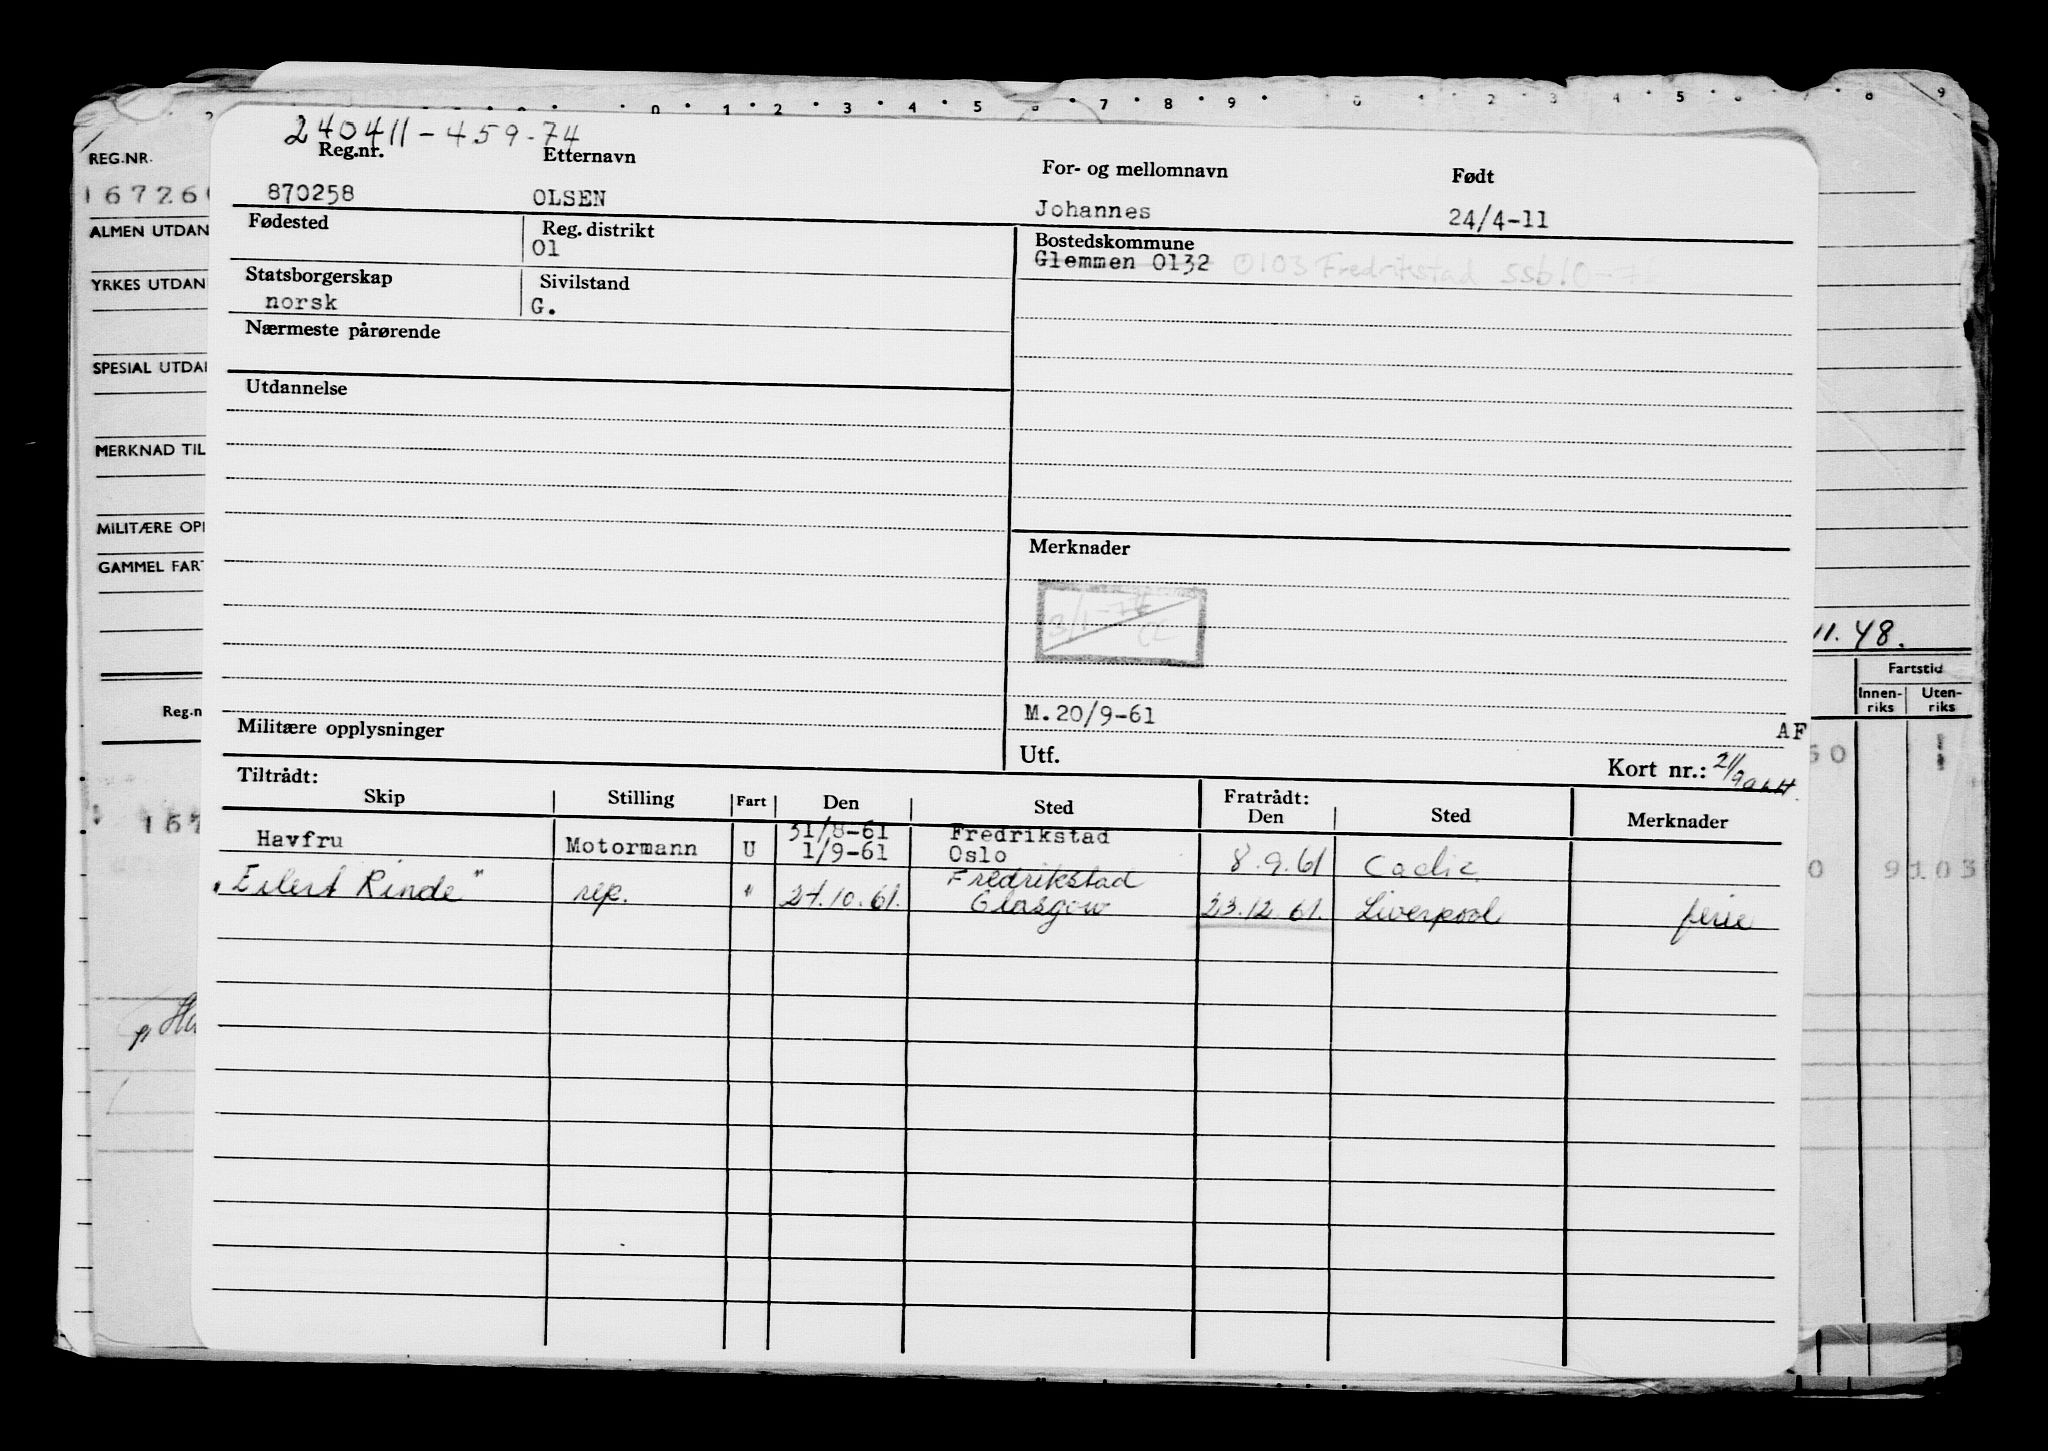 0 1 2 3 4 5 6 7 8 9 0 1 2 3 4 5 6 7 8 9
REG.NR.
ALMEN UTDAN
YRKES UTDAN
SPESIAL UTDA
MERKNAD TIL
MILITÆRE OP
GAMMEL FART
Reg.n
240411-459-74
Reg.nr. Etternavn For- og mellomnavn Født
870258 OLSEN Johannes 24/4-11
Fødested Reg. distrikt Bostedskommune
01 Glemmen 0132 0103 Fredrikstad ssb 10-7
Statsborgerskap Sivilstand
norsk G.
Nærmeste pårørende
Utdannelse
Merknader
3/1-74
M.20/9-61
Militære opplysninger AF
Utf. Kort nr.:
Tiltrådt: Fratrådt:
Skip Stilling Fart Den Sted Den Sted Merknader
31/8-61 Fredrikstad
Havfru Motormann U 1/9-61 Oslo 8.9.61 Cadiz
Fredrikstad
"Eilert Rinde" rep. " 24.10.61. Glasgow 23.12.61. Liverpool ferie
11.48.
Fartstid
Innen-riks Uten-riks